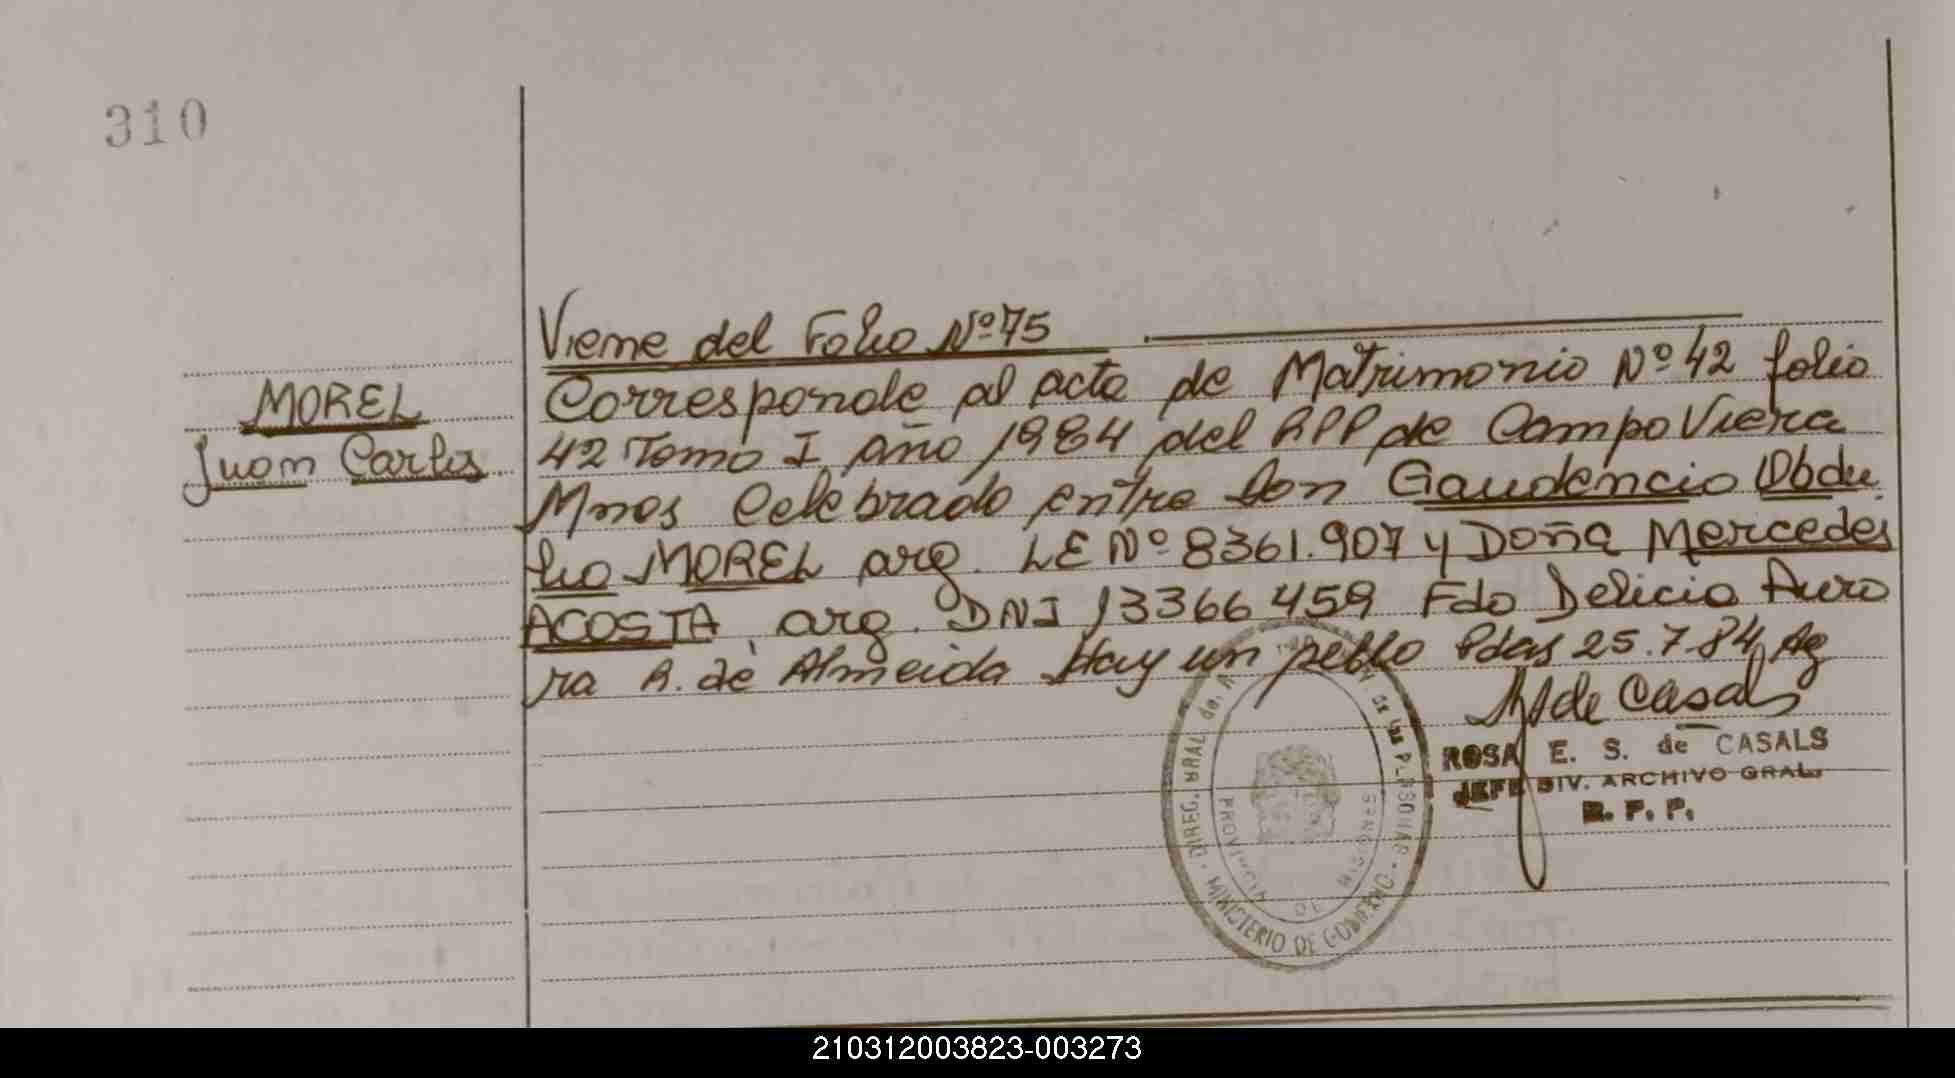 310
Viene del Folio Nº 75
MOREL
Juan Carlos
Corresponde al acta de Matrimonio Nº 42 folio
42 Tomo I año 1984 del RPP de Campo Viera
Mnes Celebrado entre Don Gaudencio Obdu
lio MOREL arg. LE Nº 8361.907 y Doña Mercedes
ACOSTA, arg. DNI 13366459 Fdo Delicia Auro
ra A. de Almeida Hay un sello Pdas 25.7.84
de Casals
ROSA E. S. de CASALS
JEFE DIV. ARCHIVO GRAL.
R. P. P.
MINISTERIO DE GOBIERNO
PROVINCIA
210312003823-003273